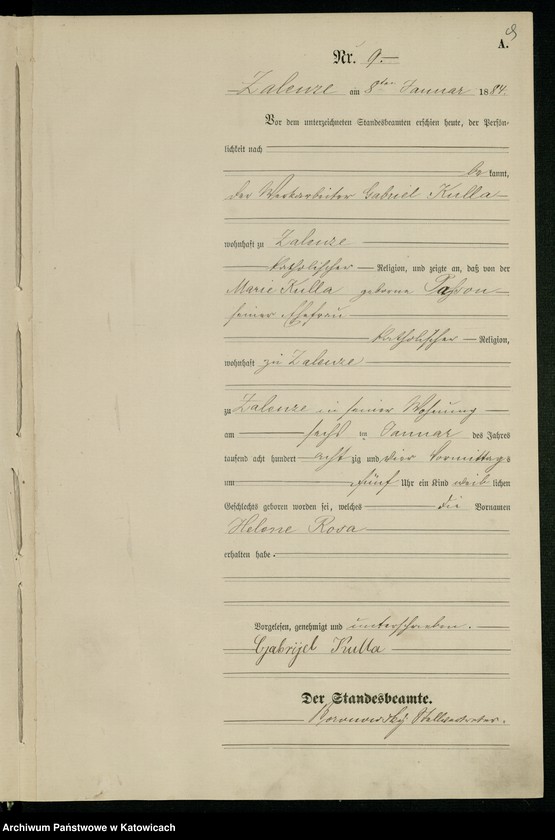 9
A.
Nr. 9.
Zalenze am 8ten Januar 1884.
Vor dem unterzeichneten Standesbeamten erschien heute, der Persön-
lichkeit nach
be kannt,
der Werkarbeiter Gabriel Kulla
wohnhaft zu Zalenze
katholischer Religion, und zeigte an, daß von der
Marie Kulla geborne
seiner Ehefrau
katholischer Religion,
wohnhaft zu Zalenze
zu Zalenze in seiner Wohnung
am sechs ten Januar des Jahres
tausend acht hundert acht zig und vier Vormittags
um fünf Uhr ein Kind weib lichen
Geschlechts geboren worden sei, welches die Vornamen
Helene Rosa
erhalten habe.
Vorgelesen, genehmigt und unterschrieben.
Gabrijel Kulla
Der Standesbeamte.
Stellvertreter.
Archiwum Państwowe w Katowicach